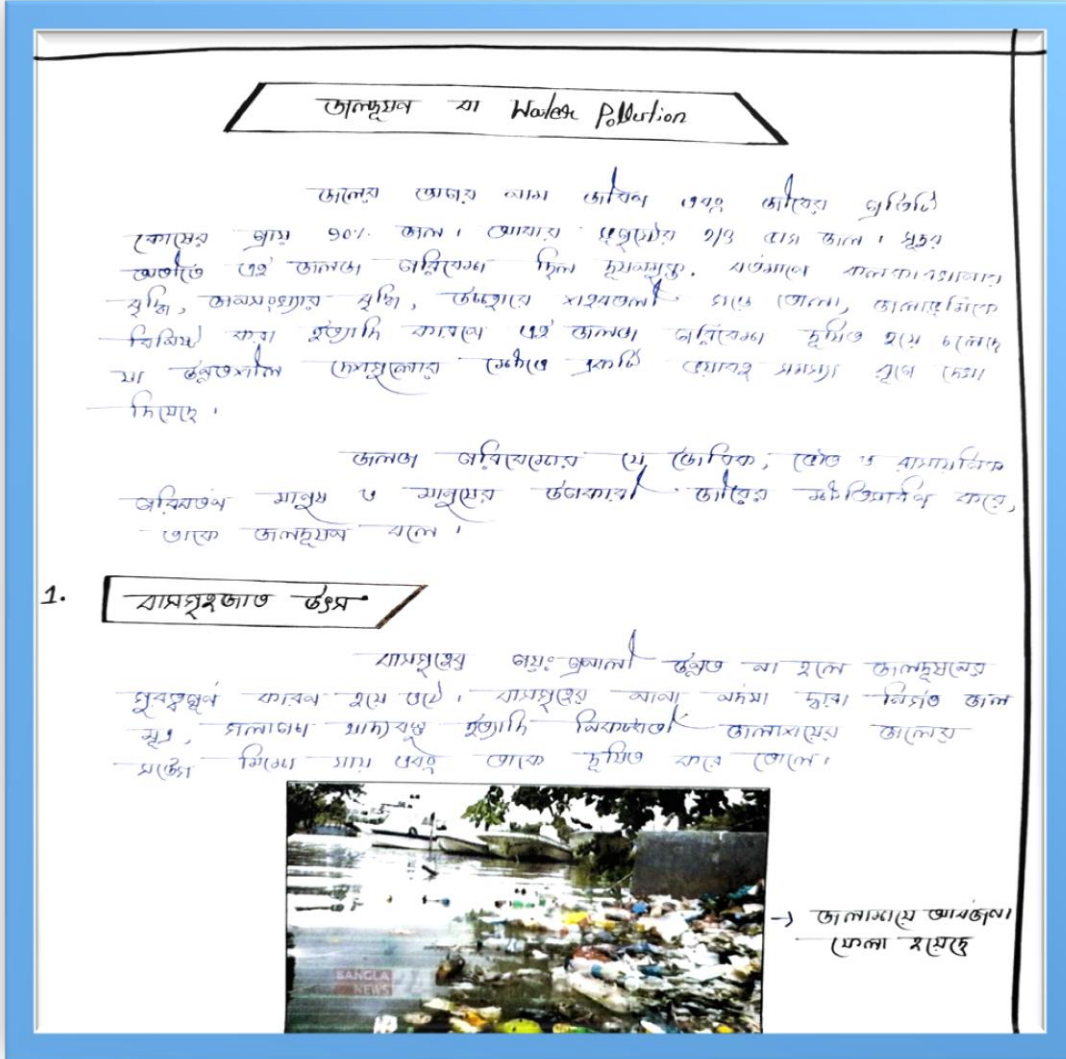 জলদূষণ বা Water Pollution
জলের অপর নাম জীবন এবং জীবের প্রতিটি
কোষের প্রায় 90% জল। আবার ভূপৃষ্ঠের ২/৩ ভাগ জল। সুদূর
অতীতে এই জলজ পরিবেশ ছিল দূষণমুক্ত. বর্তমানে কলকারখানার
বৃদ্ধি, জনসংখ্যার বৃদ্ধি, উচ্চহারে শহরতলী গড়ে তোলা, জলাভূমিকে
করা ইত্যাদি কারণে এই জলজ পরিবেশ দূষিত হয়ে চলেছে
যা উন্নতশীল দেশগুলোর ক্ষেত্রে একটি ভয়াবহ সমস্যা রূপে দেখা
দিয়েছে।
জলজ পরিবেশের যে জৈবিক, ভৌত ও রাসায়নিক
পরিবর্তন মানুষ ও মানুষের উপকারী জীবের ক্ষতিসাধন করে,
তাকে জলদূষণ বলে।
1. বাসগৃহজাত উৎস
বাসগৃহের পয়ঃপ্রনালী উন্নত না হলে জলদূষনের
গুরুত্বপূর্ণ কারন হয়ে ওঠে। বাসগৃহের নালা নর্দমা দ্বারা নির্গত জল
মূত্র, গলাপচা খাদ্যবস্তু ইত্যাদি নিকটবর্তী জলাশয়ের জলের
সঙ্গে মিশে যায় এবং তাকে দূষিত করে তোলে।
→ জলাশয়ে আবর্জনা
ফেলা হয়েছে
BANGLA
NEWS